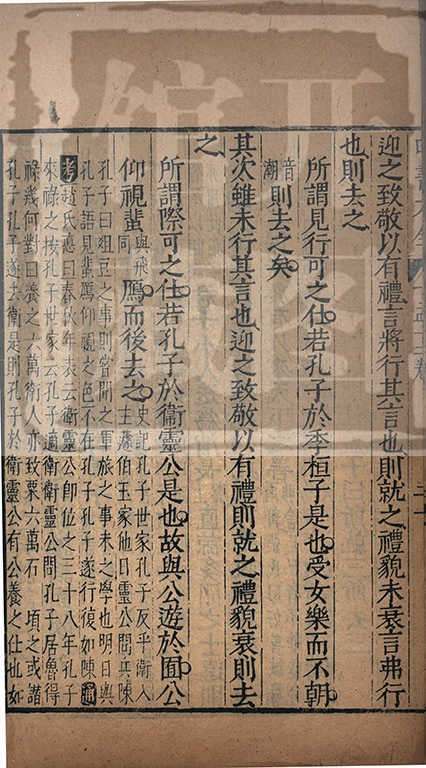 迎之致敬以有禮言將行其言也則就之禮貌未衰言弗行
也則去之
所謂見行可之仕若孔子於季桓子是也受女樂而不朝
音潮則去之矣
其次雖未行其言也迎之致敬以有禮則就之禮貌衰則去
之
所謂際可之仕若孔子於衞靈公是也故與公遊於囿公
仰視蜚與飛同鴈而後去之史記孔子世家孔子反乎衛入主蘧伯玉家他日靈公問兵陳
孔子曰俎豆之事則嘗聞之軍旅之事未之學也明日與
孔子語見蜚鴈仰視之色不在孔子孔子遂行復如陳通
考趙氏惪曰春秋年表云衛靈公即位之三十八年孔子
來祿之按孔子世家云孔子適衛衛靈公問孔子居魯得
祿幾何對曰養之六萬衛人亦致粟六萬石頃之或譖
孔子孔子遂去衛是則孔子於衛靈公有公養之仕也如